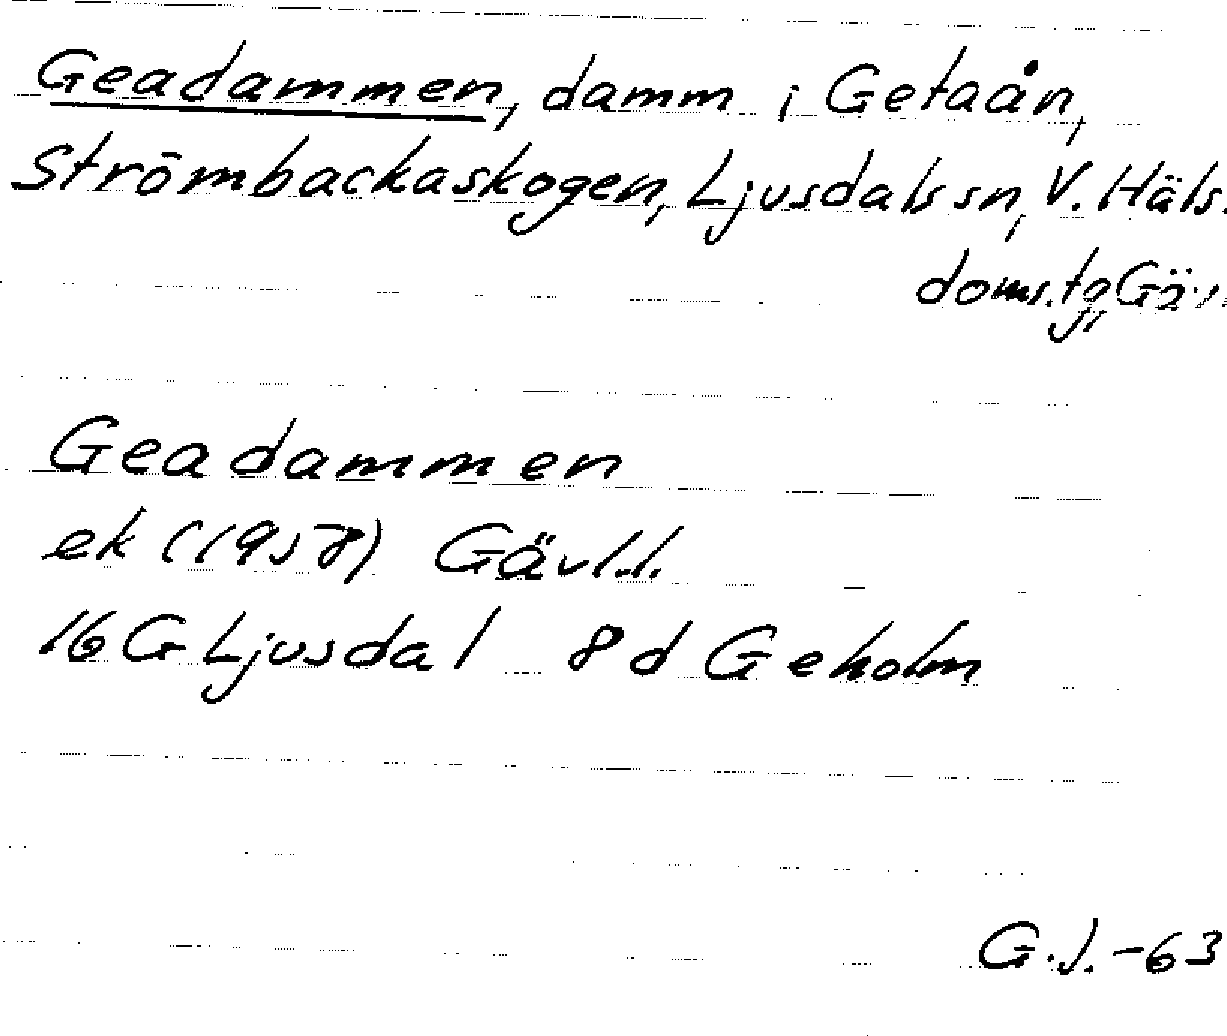 Geadammen, damm i Getaån,
Strömbackaskogen, Ljusdals sn, V. Häls.
doms.tg
Geadammen
ek (1958) Gävl.l.
16G Ljusdal 8d Geholm
G.J.-63